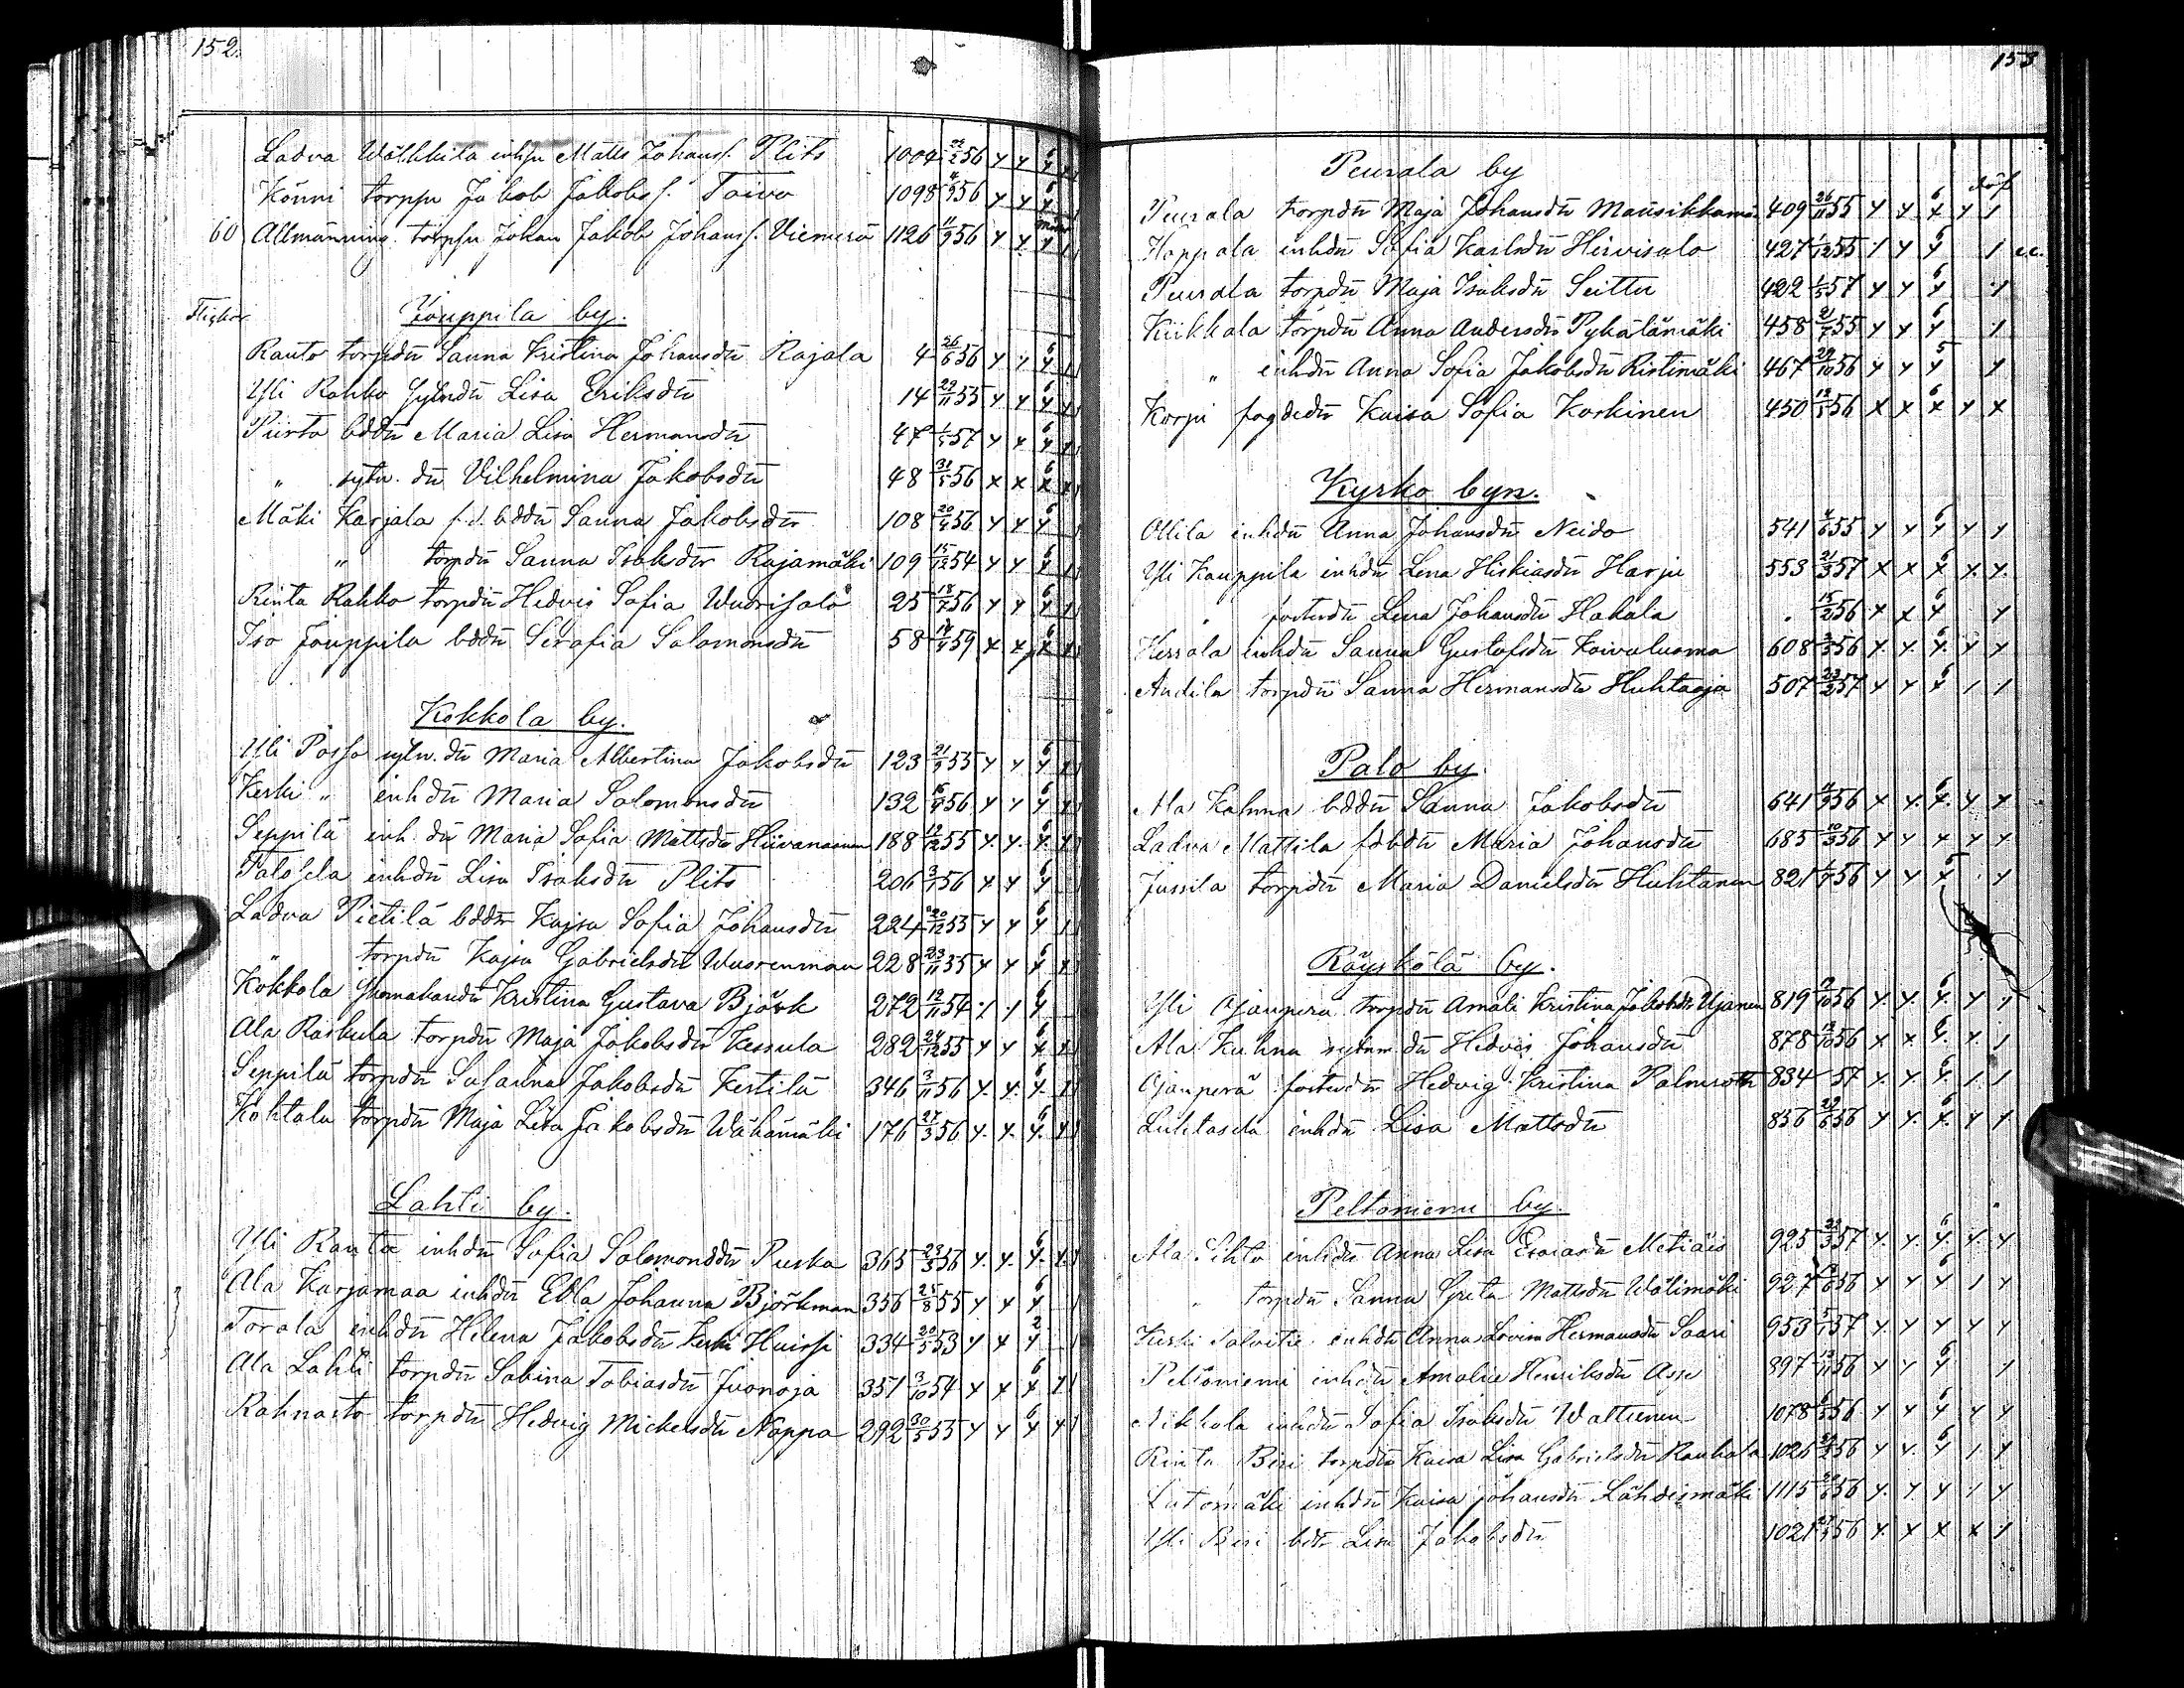 152.
Ladva Wälkkilä inhsn Matts Johanss. Plits 1004 22/2 56 y y 6 y
Könni torpsn Jakob Jakobss. Toivo 1098 4/9 56 y y 6 y
60 Allmänning torpsn Johan Jakob Johanss. Viemerö 1126 11/9 56 y y y
Flickor
Jouppila by.
Ranto torpdn Sanna Kristina Johansdn Rajala 4 26/6 56 y y 6 y
Yli Rahko sytndn Lisa Eriksdn 14 29/11 55 y y 6 y
Piirto bddn Maria Lisa Hermansdn 47 1/5 57 y x 6 y
" sytn. dn Vilhelmina Jakobsdn 48 31/5 56 x x 6 x
Mäki Karjala f.d. bddn Sanna Jakobsdn 108 20/4 56 y y 6 y
" torpdn Sanna Isaksdn Rajamäki 109 15/12 54 y y 6 y
Rinta Rahko torpdn Hedvis Sofia Wuorisalo 25 18/7 56 y y 6 y
Iso Jouppila bddn Serafia Salomonsdn 58 59 x x 6 x
Kokkola by.
Yli Posso sytn. dn Maria Albertina Jakobsdn 123 21/9 55 y y 6 y
Keski " inhdn Maria Salomonsdn 132 56 y y 6 y
Seppilä inh. dn Maria Sofia Mattsdn Hiivanainen 188 19/12 55 y. y. 6 y.
Talosela inhdn Lisa Isaksdn Plits 206 3/1 56 y y 6 y
Ladva Pietilä bddn Kajsa Sofia Johansdn 224 20/12 55 y y 6 y
" torpdn Kajsa Gabrielsdn Wuorenmaa 228 23/11 55 y. y 6 y
Kokkola skomakandn Kristina Gustava Björk 272 19/11 54 y y 6 y
Ala Raskula torpdn Maja Jakobsdn Kessula 282 24/12 55 y y 6 x
Seppilä torpdn Susanna Jakobsdn Kestilä 346 3/11 56 y. y. 6 y.
Kohtala torpdn Maja Lisa Jakobsdn Wähämäki 176 27/3 56 y. y. 6 y.
Lahti by.
Yli Ranta inhdn Sofia Salomonsdn Puska 365 23/3 56 y. y. 6 y.
Ala Karjamaa inhdn Edla Johanna Björkman 356 25/8 55 y y 6 y
Torala inhdn Helena Jakobsdn Keski Huissi 334 20/5 53 y y 2 y
Ala Lahti torpdn Sabina Tobiasdn Juonoja 351 3/10 54 y x 6 x
Rahnasto torpdn Hedvig Mickelsdn Noppa 292 30/5 55 y y 6 y y
153
Peurala by
Peurala torpdn Maja Johansdn Mansikkamä 409 26/11 55 y y 6 y y
Hoppala inhdn Sofia Karlsdn Hirvisalo 427 1/12 55 y y 6 y
Peurala torpdn Maja Isaksdn Seittu 422 1/5 57 y y 6 y y
Kiikkala torpdn Anna Andersdn Pykälämäki 458 21/7 55 y y 6 y
" inhdn Anna Sofia Jakobsdn Ristimäki 467 29/10 56 y y 5 y y
Korpi fogdedn Kaisa Sofia Koskinen 450 56 x x 6 x y x
Kyrko byn.
Ollila inhdn Anna Johansdn Neido 541 4/6 55 y y 6 y y y
Yli Kauppila inhdn Lena Hiskiasdn Harju 553 21/3 57 x x 6 x y. y.
" fosterdn Lena Johansdn Hakala 15/2 56 y x 6 y y
Herrala inhdn Sanna Gustafsdn Koivuluoma 608 3/3 56 y. y. 6 y. y y
Andila torpdn Sanna Hermansdn Huhtaoja 507 23/2 57 y y 6 y
Palo by.
Ala Kahma bddn Sanna Jakobsdn 641 4/9 56 y y. 6 y. y y
Ladva Mattila fdbdn Maria Johansdn 685 10/3 56 y y y y y
Jussila torpdn Maria Danielsdn Huhtanen 821 1/9 56 y y 6 x y
Röyskölä by.
Yli Ojanpera torpdn Amali Kristina Jakobsdn Ujanen 819 2/10 56 y. y. 6 y. y
Ala Kuhna sytnm dn Hedvis Johansdn 878 13/10 56 x x 6 y.
Ojanperä fosterdn Hedvig Kristina Palmroth 834 57 y. y. 6 y.
Luhtasela inhdn Lisa Mattsdn 836 29/6 56 y y. 6 y. y
Peltoniemi by.
Ala Sihto inhdn Anna Lisa Esaiasdn Metiäis 925 22/3 57 y. y. 6 y y y
" torpdn Sanna Greta Mattsdn Wälimäki 927 56 y y 6 y y
Keski Salvitie inhdn Anna Lovisa Hermansdn Saari 953 5/1 57 y. y. y y y
Peltoniemi inhdn Amalia Henriksdn Asse 897 13/11 56 y y 6 y
Nikkola inhdn Sofia Isaksdn Waltunen 1078 56 y y 6 y y y
Rinta Biri torpdn Kaisa Lisa Gabrielsdn Rauhala 1026 56 y y. 6 y y
Liitomäki inhdn Kaisa Johansdn Lähdesmäki 1115 56 y. y y y
Yli Biri bdn Lisa Jakobsdn 1021 56 y. x x x y